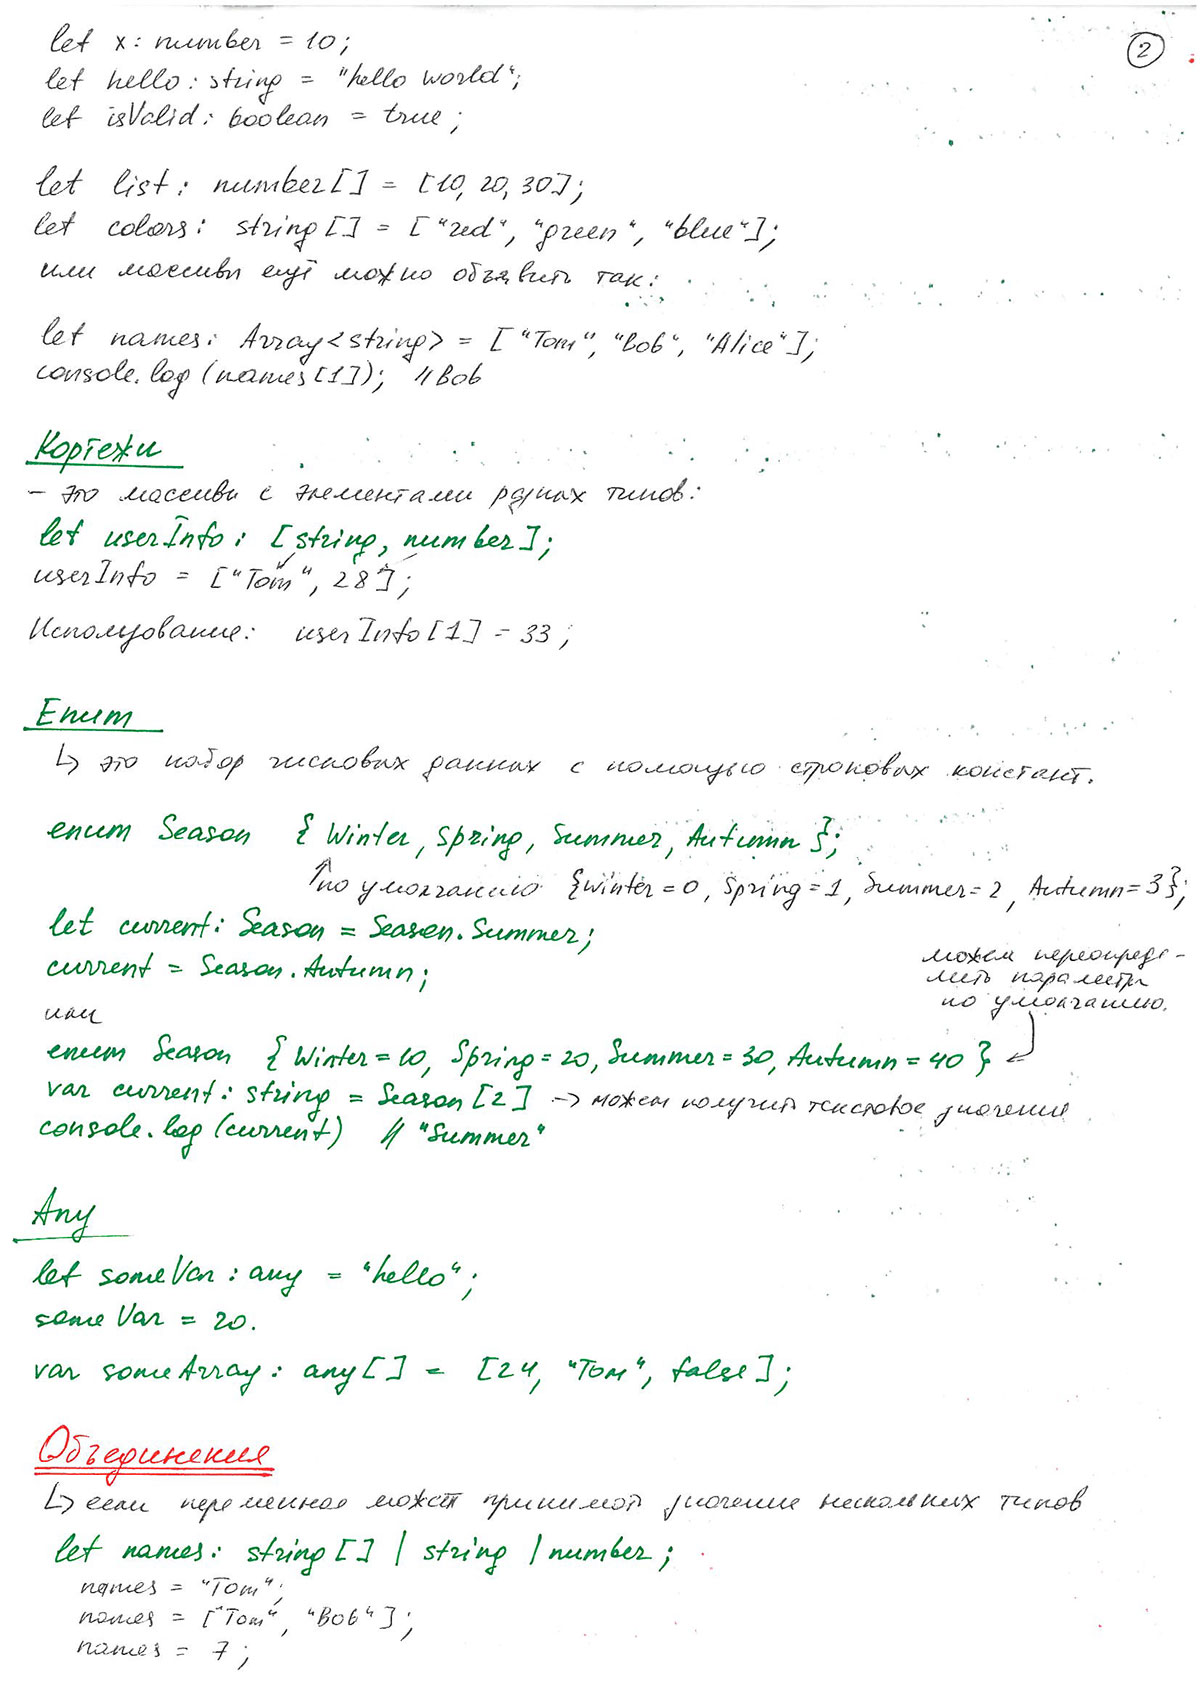 2
let x: number = 10;
let hello: string = "hello world";
let isValid: boolean = true;
let list: number[] = [10, 20, 30];
let colors: string[] = ["red", "green", "blue"];
или массивы ещё можно объявить так:
let names: Array<string> = ["Tom", "Bob", "Alice"];
console.log(names[1]); // Bob
Кортежи
- это массивы с элементами разных типов:
let userInfo: [string, number];
userInfo = ["Tom", 28];
Использование: userInfo[1] = 33;
Enum
↳ это набор числовых данных с помощью строковых констант.
enum Season { Winter, Spring, Summer, Autumn };
↑ по умолчанию {Winter=0, Spring=1, Summer=2, Autumn=3};
let current: Season = Season.Summer;
current = Season.Autumn;
можем переопреде-
лить параметры
по умолчанию.
или
enum Season { Winter=10, Spring=20, Summer=30, Autumn=40 }
var current: string = Season[2] -> можем получить текстовое значение
console.log(current) // "Summer"
Any
let someVar: any = "hello";
someVar = 20.
var someArray: any[] = [24, "Tom", false];
Объединения
↳ если переменная может принимать значение нескольких типов
let names: string[] | string | number;
names = "Tom";
names = ["Tom", "Bob"];
names = 7;